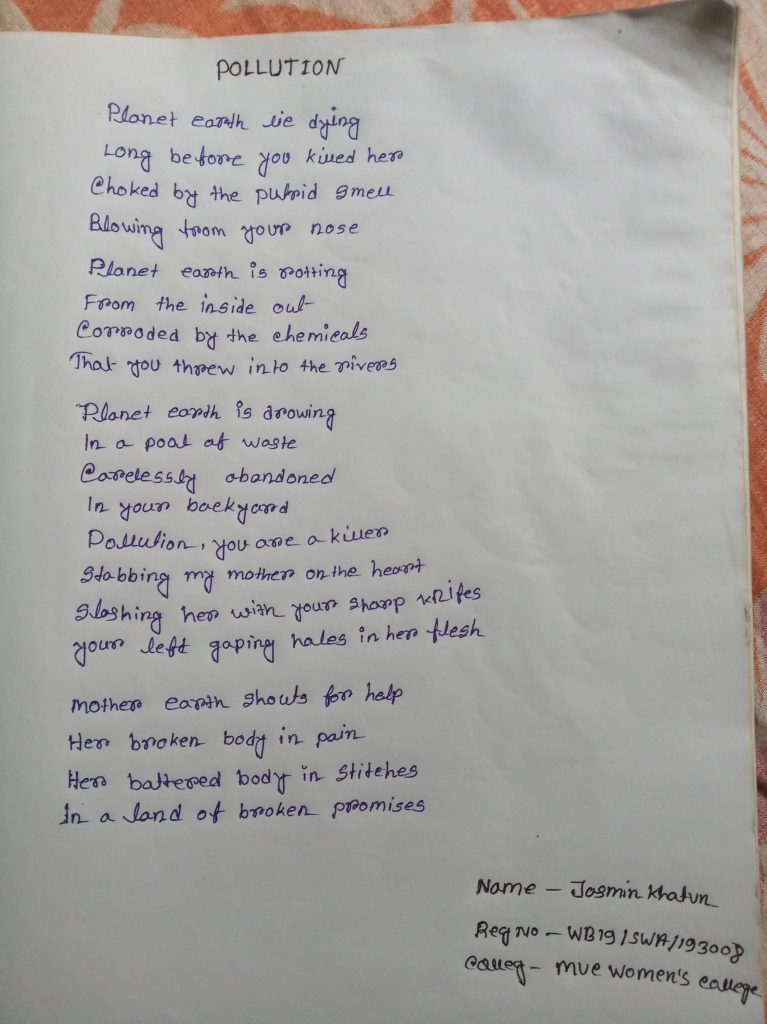 POLLUTION
Planet earth lie dying
Long before you killed her
Choked by the putrid smell
Blowing from your nose
Planet earth is rotting
From the inside out
Corroded by the chemicals
That you threw into the rivers
Planet earth is drowing
In a pool of waste
Carelessly abandoned
In your backyard
Pollution, you are a killer
Stabbing my mother on the heart
Slashing her with your sharp knifes
your left gaping holes in her flesh
mother earth shouts for help
Her broken body in pain
Her battered body in stitches
In a land of broken promises
Name - Jasmin Khatun
Reg No - WB19/SWA/193008
Colleg - MUC Women's college